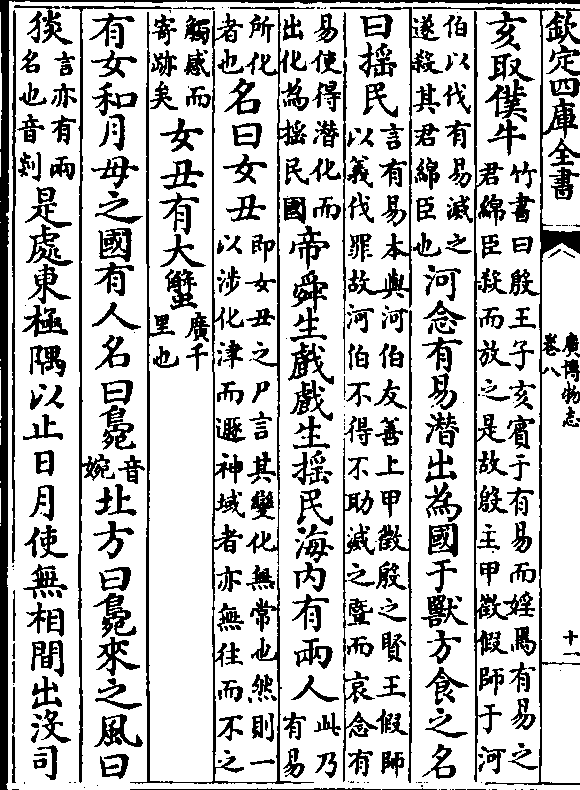 欽定四庫全書
廣博物志
卷八
十一
亥取僕牛竹書曰殷王子亥賓于有易而婬焉有易之君綿臣殺而放之是故殷主甲徵假師于河
伯以伐有易滅之遂殺其君綿臣也河念有易潜出為國于獸方食之名
曰揺民言有易本與河伯友善上甲徵殷之賢王假師以義伐罪故河伯不得不助滅之暨而哀念有
易使得潜化而出化為揺民國帝舜生戲戲生揺民海内有兩人此乃有易
所化者也名曰女丑即女丑之尸言其變化無常也然則一以涉化津而遯神域者亦無往而不之
觸感而寄跡矣女丑有大蟹廣千里也
有女和月母之國有人名曰鵷音婉北方曰鵷來之風曰
𤟇言亦有兩名也音剡是處東極隅以止日月使無相間出沒司